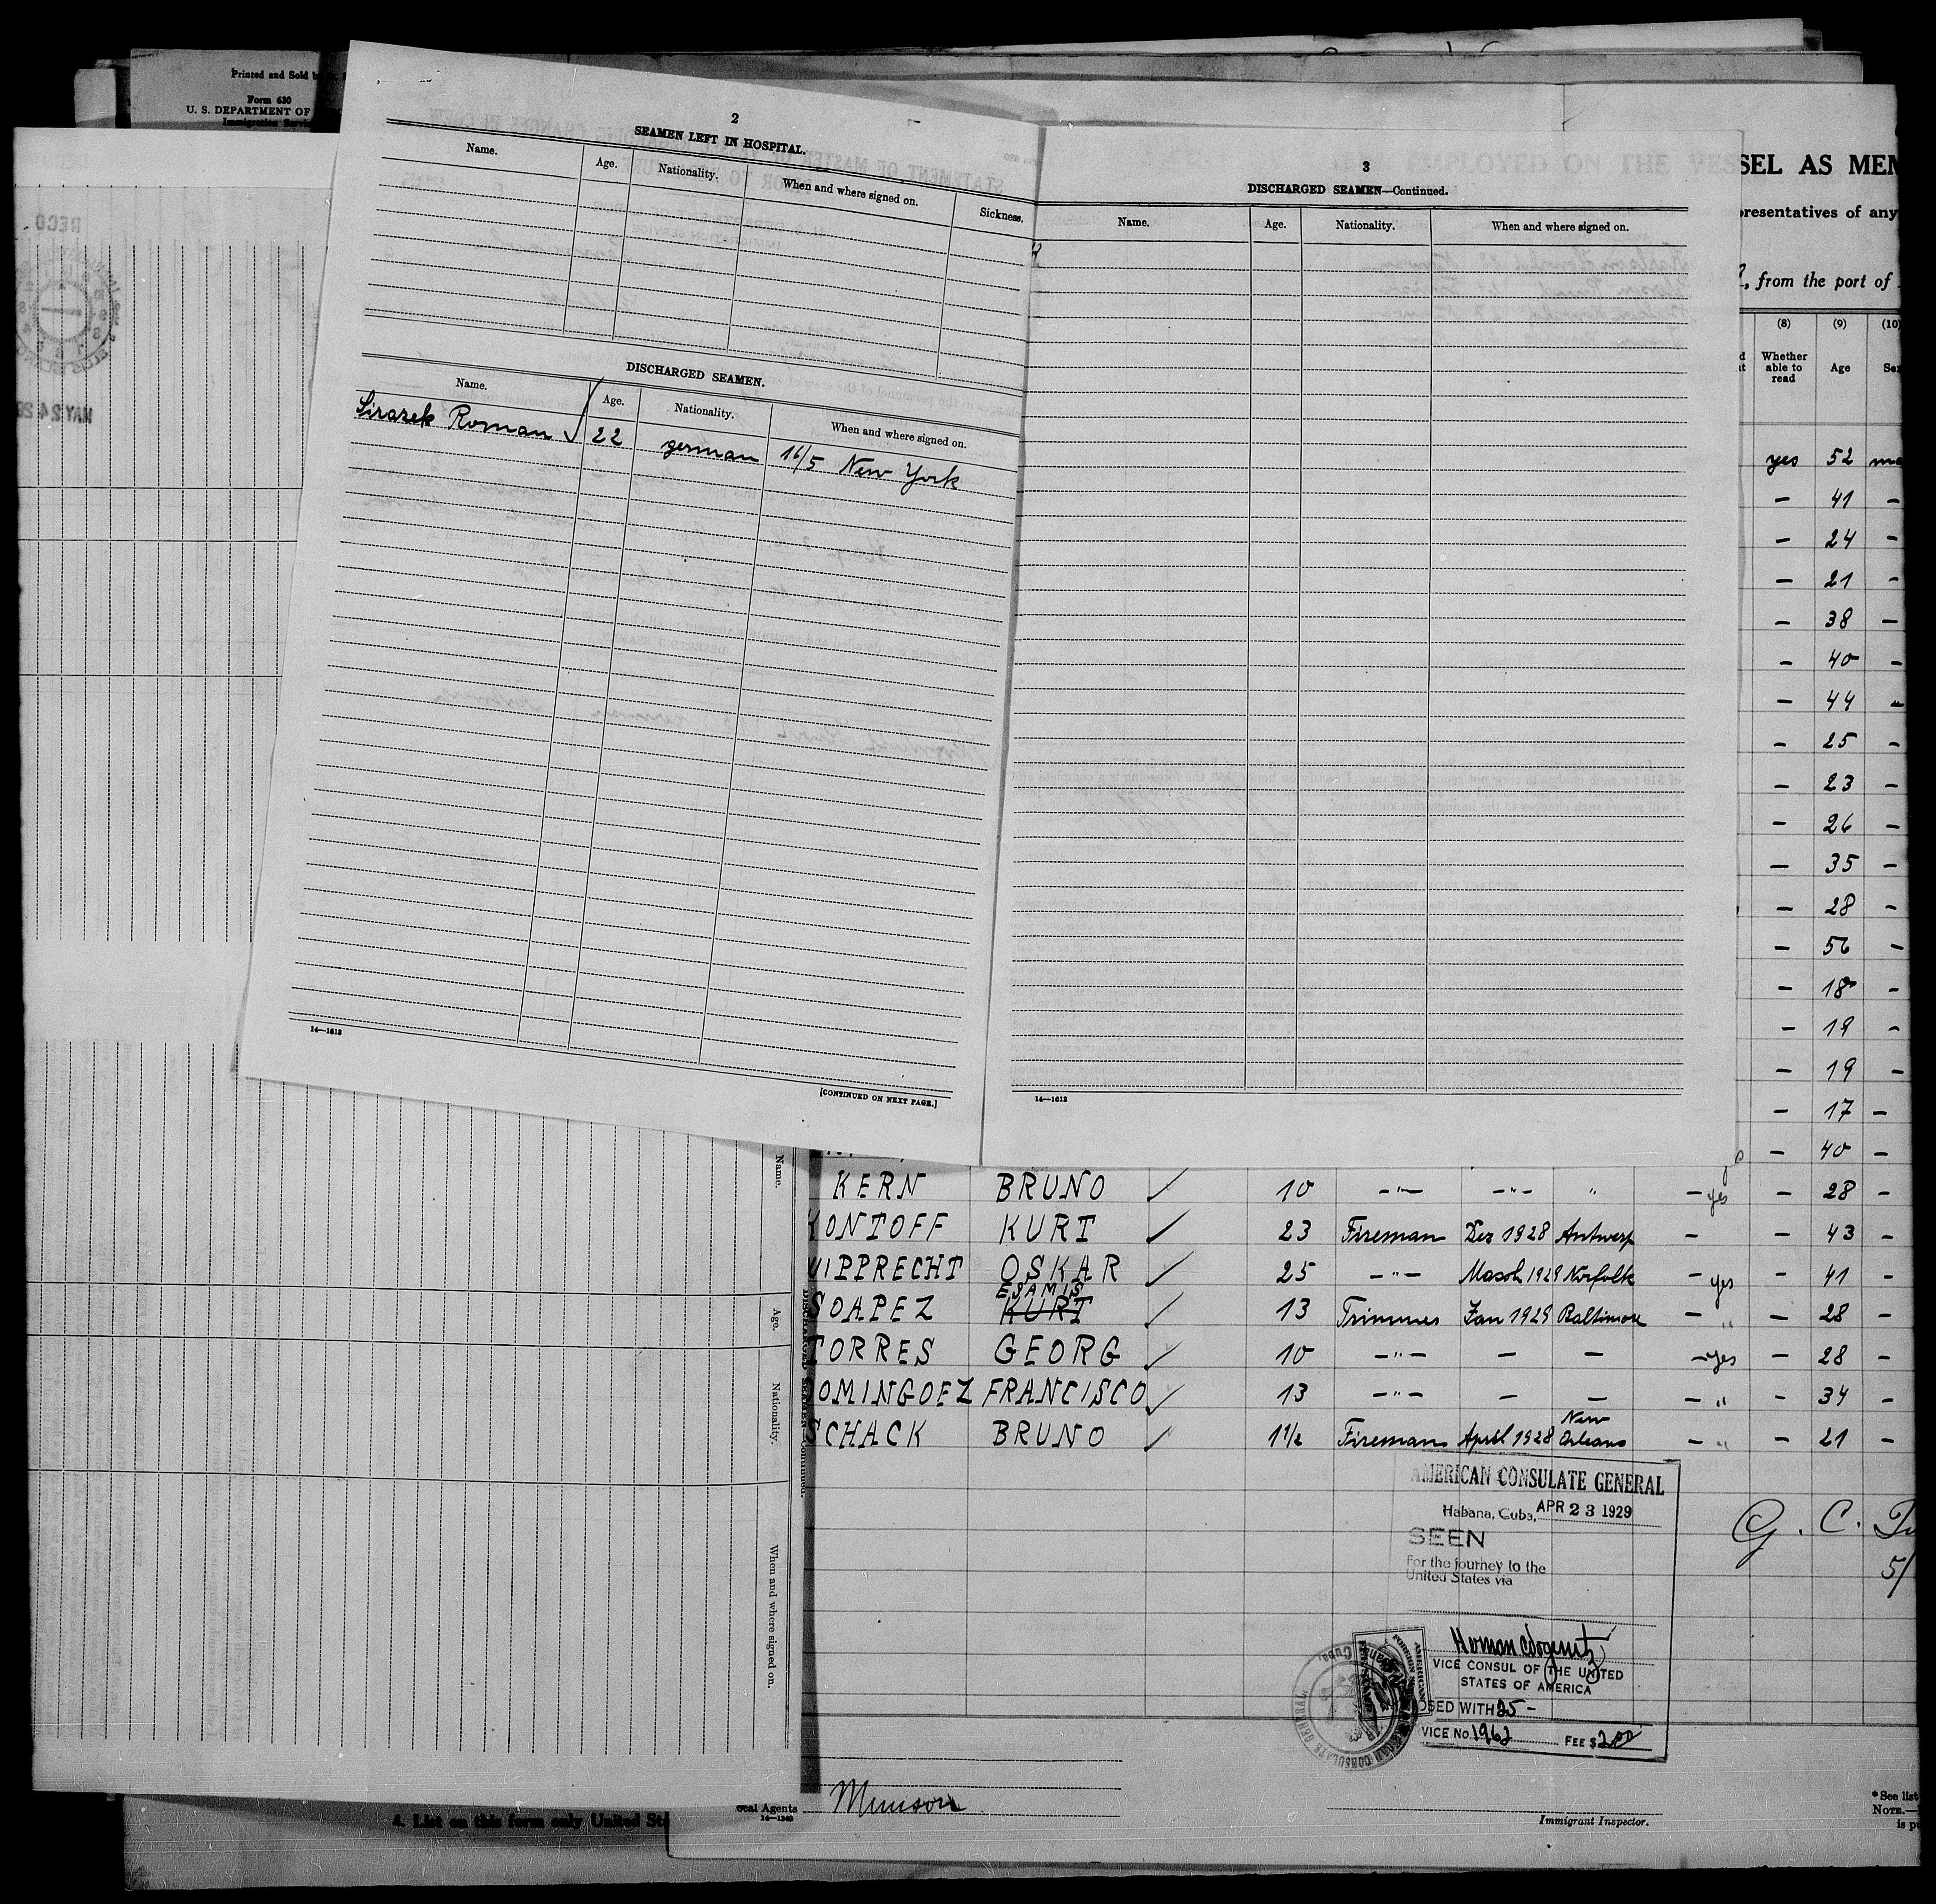 Printed and Sold b
Form 630
U. S. DEPARTMENT OF
Immigration Servi
2
SEAMEN LEFT IN HOSPITAL.
Name. Age. Nationality. When and where signed on. Sickness.
DISCHARGED SEAMEN.
Name. Age. Nationality. When and where signed on.
Sirazek Roman 22 german 16/5 New York
14—1613
[CONTINUED ON NEXT PAGE.]
3
DISCHARGED SEAMEN—Continued.
Name. Age. Nationality. When and where signed on.
14—1613
SEL AS MEM
presentatives of any
, from the port of
(8) (9) (10)
Whether able to read Age Sex
yes 52 ma
— 41 —
— 24 —
— 21 —
— 38 —
— 40 —
— 44 —
— 25 —
— 23 —
— 26 —
— 35 —
— 28 —
— 56 —
— 18 —
— 19 —
— 19 —
— 17 —
— 40 —
KERN BRUNO ✓ 10 —"— —"— " — yes — 28 —
ONTOFF KURT ✓ 23 Fireman Dez 1928 Antwerp — — 43 —
IPPRECHT OSKAR ✓ 25 —"— March 1929 Norfolk — yes — 41 —
ESAMIS
SOAPEZ KURT ✓ 13 Trimmer Jan 1929 Baltimore — " — 28 —
TORRES GEORG ✓ 10 —"— — — — yes — 28 —
OMINGOEZ FRANCISCO ✓ 13 —"— — — — " — 34 —
SCHACK BRUNO ✓ 1 1/2 Fireman April 1928 New Orleans — " — 21 —
AMERICAN CONSULATE GENERAL
Habana, Cuba, APR 23 1929
SEEN
For the journey to the
United States via
G. C.
5/
VICE CONSUL OF THE UNITED
STATES OF AMERICA
OSED WITH 25 -
VICE No. 1962 FEE $ 2.00
Munson
cal Agents
14—1240
Immigrant Inspector.
* See list
NOTE.—
is pu
4. List on this form only United Sta
RECD
MAY 24 29
Name. Age. Nationality. When and where signed on.
DISCHARGED SEAMEN—Continued.